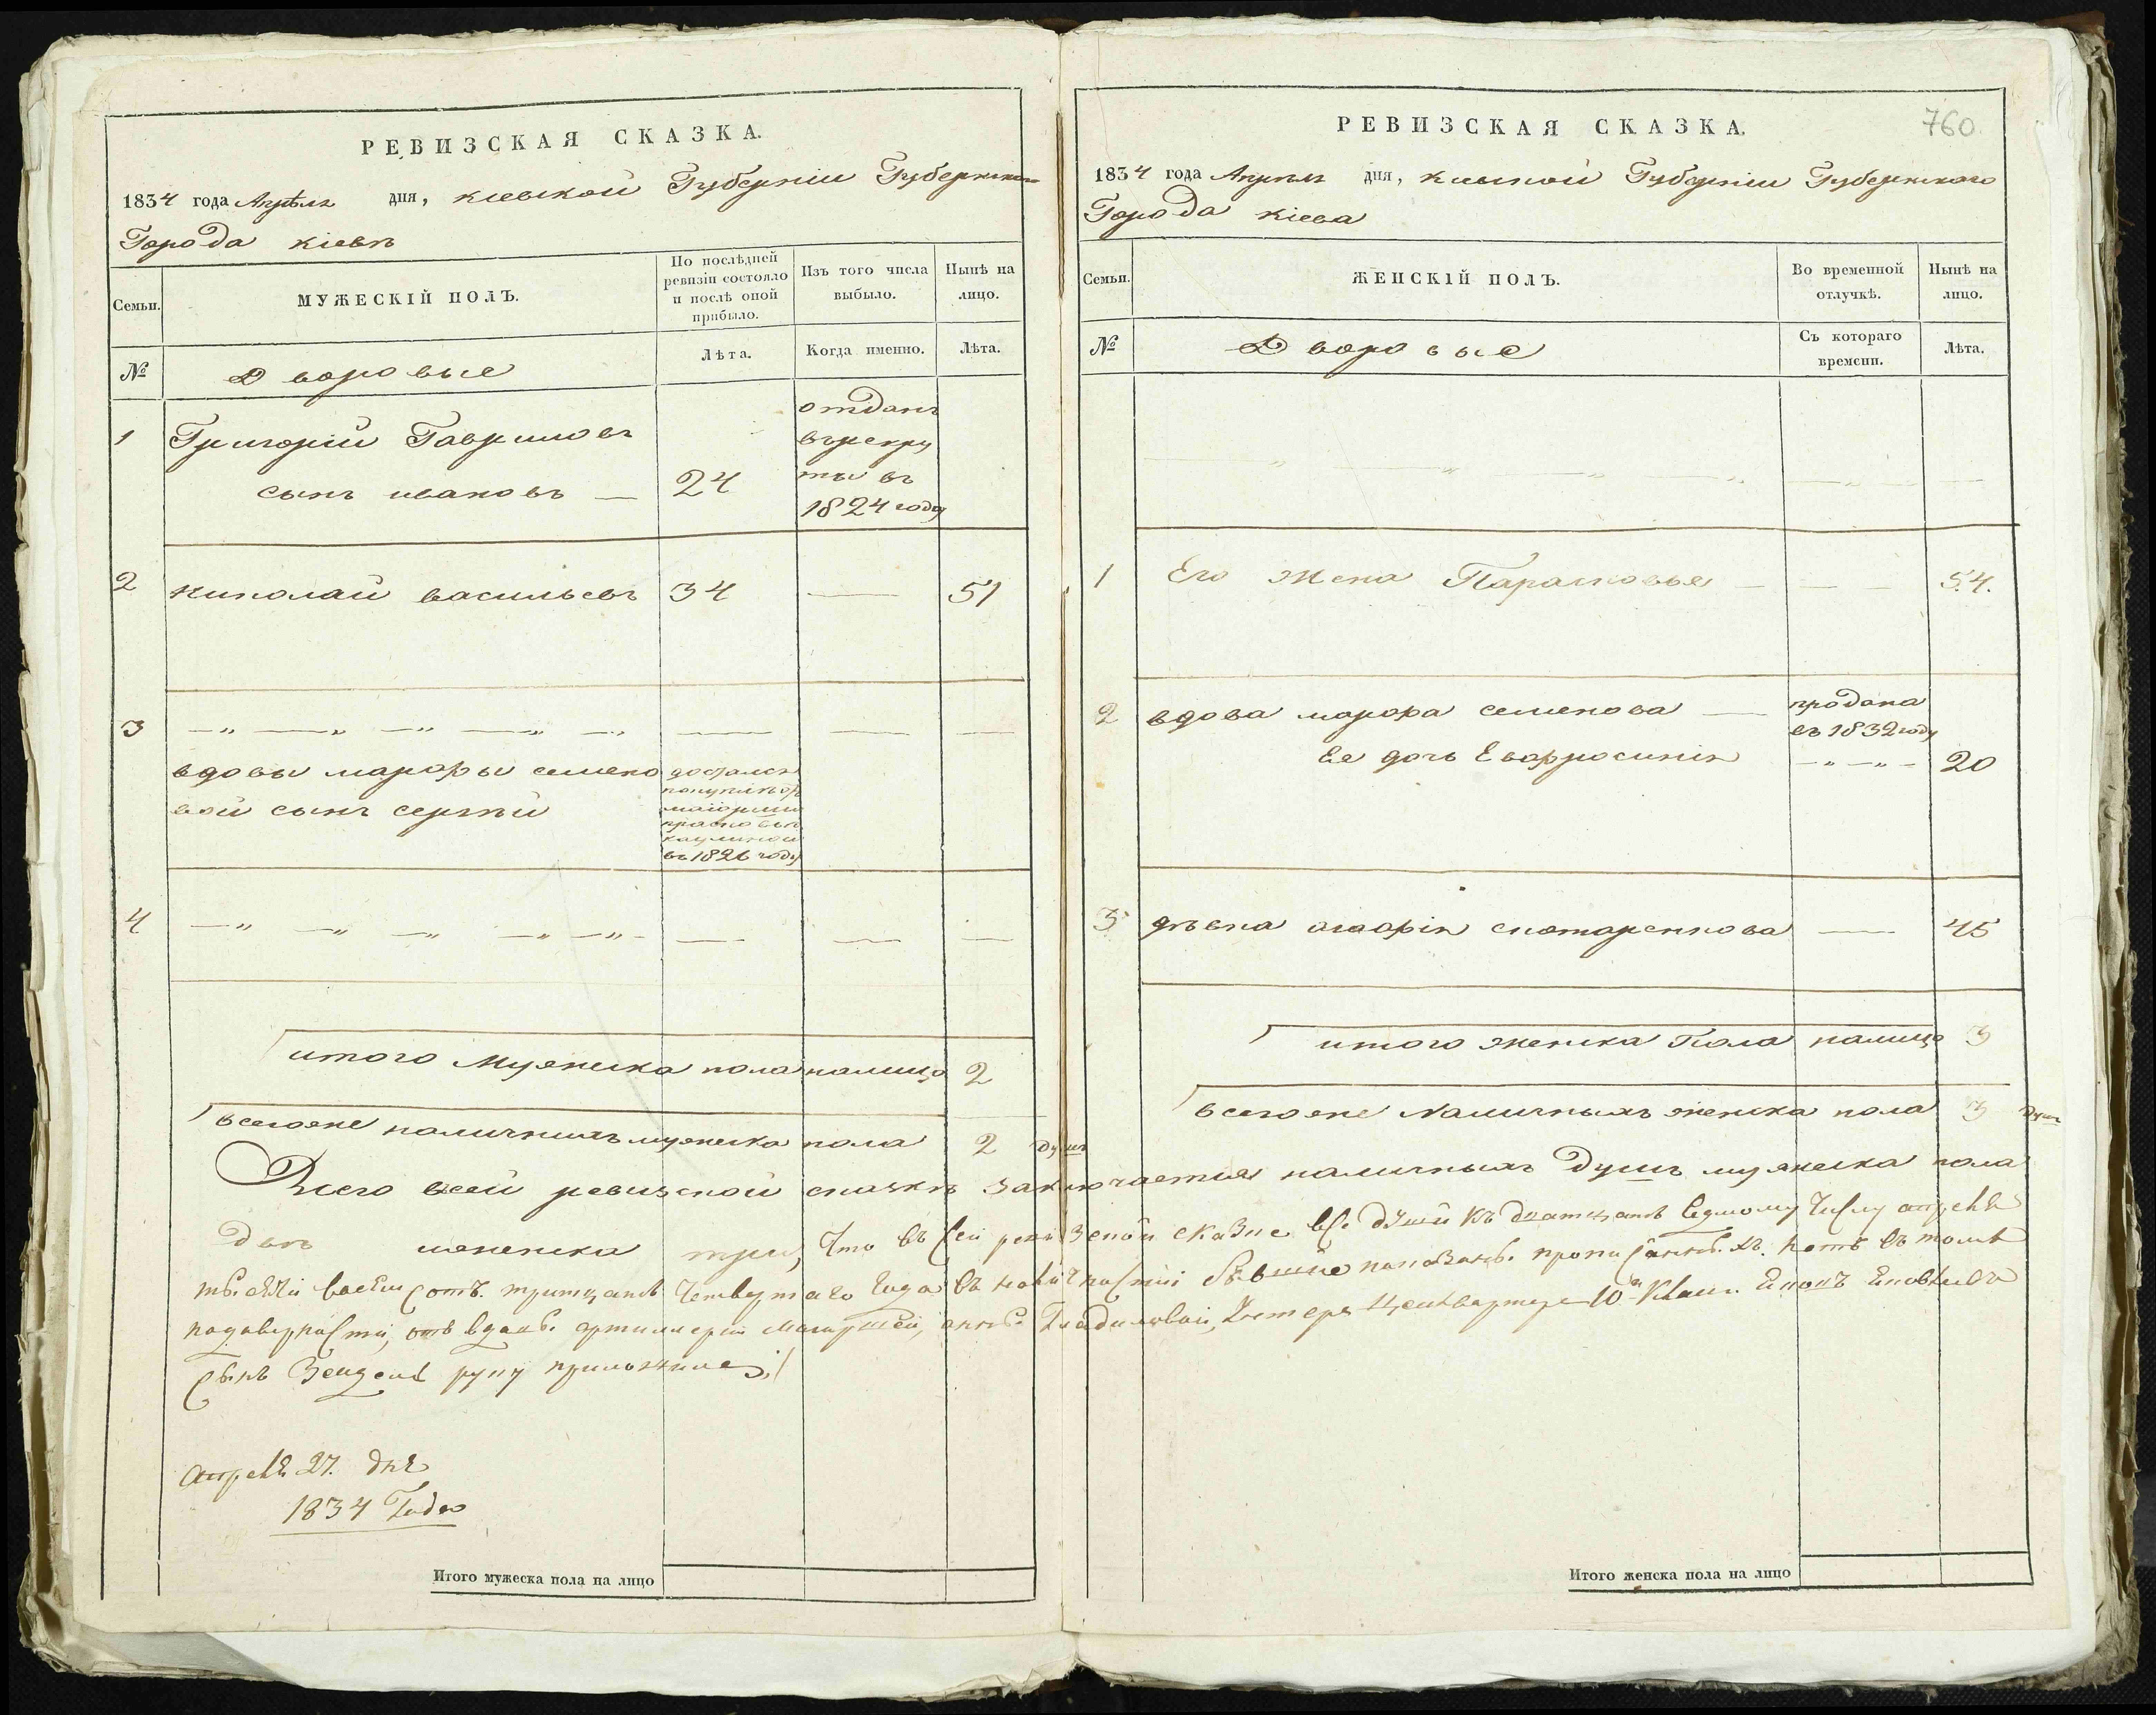 РЕВИЗСКАЯ СКАЗКА.
1834 года Апрѣля дня, киевской Губерніи Губернскаго
Города кіевѣ
Семьи.
МУЖЕСКІЙ ПОЛЪ.
По послѣдней ревизіи состояло и послѣ оной прибыло.
Изъ того числа выбыло.
Нынѣ на лицо.
№
Дворовые
Лѣта.
Когда именно.
Лѣта.
1 Григорій Гавриловъ
сынъ ивановъ — 24
отданъ
въ рекру
ты въ
1824 году
2 николай васильевъ 34 — 51
3
вдовы марфы семено
вой сынъ сергѣй
достался
маіорши
въ 1826 году
4
итого Мужеска пола налицо 2
всегоже наличныхъ мужеска пола 2 душъ
РЕВИЗСКАЯ СКАЗКА.
760.
1834 года Апрѣля дня, киевской Губерніи Губернскаго
Города кіева
Семьи.
ЖЕНСКІЙ ПОЛЪ.
Во временной отлучкѣ.
Нынѣ на лицо.
№
Дворовые
Съ котораго времени.
Лѣта.
1 Его жена Парасковья — 54.
2 вдова марфа семенова —
продана
въ 1832 году
Ее дочь Евфросинія 20
3 дѣвка агафія слотаренкова — 45
итого женска Пола налицо 3
всегоже Наличныхъ женска пола 3 душъ
Всего всей ревизской сказкѣ заключается наличныхъ Душъ мужеска пола
Двѣ женска три, Что въ сей ревизской сказке все души къ дватцать седмому числу апреля
тысячи восемь сотъ. тритцать четвертаго года въ наличности бывшие показаны.
артиллерии Маиоршей, 10й Класс.
сынъ руку приложилъ
апреля 27. дня
1834 Года
Итого мужеска пола на лицо
Итого женска пола на лицо